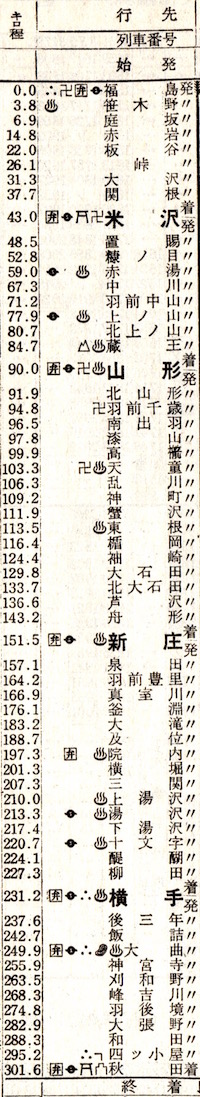 キロ程 行先
列車番号
始発
0.0 ∴卍弁 福島発
3.8 ♨笹木野〃
6.9 庭坂〃
14.8 赤岩〃
22.0 板谷〃
26.1 峠〃
31.3 大沢〃
37.7 関根〃
43.0 弁 卍米沢着発
48.5 置賜〃
52.8 糠ノ目〃
59.0 ♨赤湯〃
67.3 中川〃
71.2 羽前中山〃
77.9 ♨上ノ山〃
80.7 北上ノ山〃
84.7 △♨蔵王〃
90.0 弁 卍♨山形着発
91.9 北山形〃
94.8 卍羽前千歳〃
96.5 南出羽〃
97.8 漆山〃
99.9 高擶〃
103.3 卍♨天童〃
106.3 乱川〃
109.2 神町〃
111.9 蟹沢〃
113.5 ♨東根〃
116.4 楯岡〃
124.4 袖崎〃
129.8 大石田〃
133.7 北大石田〃
136.6 芦沢〃
143.2 舟形〃
151.5 弁 ♨新庄着発
157.1 泉田〃
164.2 羽前豊里〃
166.9 真室川〃
176.1 釜淵〃
183.2 大滝〃
188.7 及位〃
197.3 弁 ♨院内〃
201.3 横堀〃
207.3 三関〃
210.0 ♨上湯沢〃
213.3 ♨湯沢〃
217.4 下湯沢〃
220.7 ♨十文字〃
224.1 醍醐〃
227.3 柳田〃
231.2 弁 ∴♨横手着発
237.6 後三年〃
242.7 飯詰〃
249.9 弁 ∴ ♨大曲〃
255.9 神宮寺〃
263.5 刈和野〃
268.3 峰吉川〃
274.8 羽後境〃
282.9 大張野〃
288.3 和田〃
295.2 ∴ 四ッ小屋〃
301.6 弁 秋田着
終着